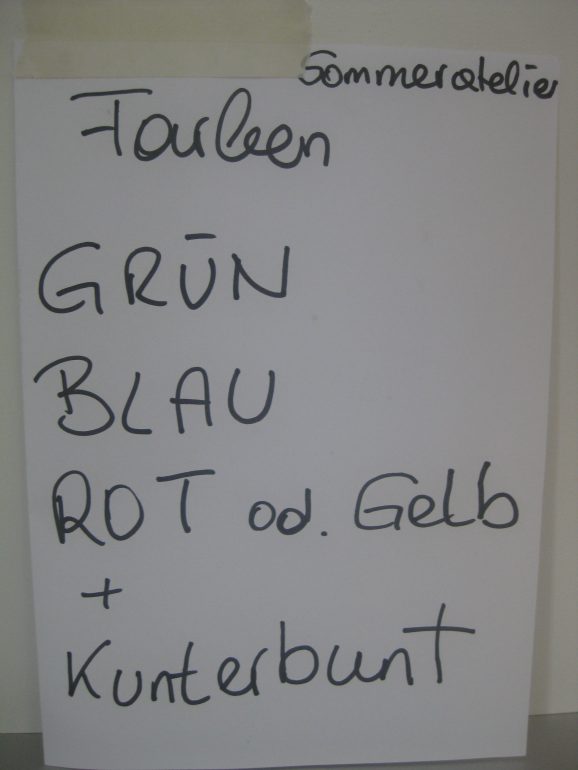 Sommeratelier
Farben
GRÜN
BLAU
ROT od. Gelb
+
Kunterbunt